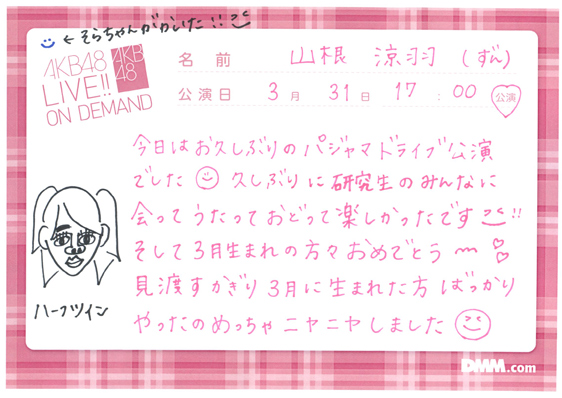 ← そらちゃんがかいた!!
AKB48
LIVE!!
ON DEMAND
AKB
48
名前 山根 涼羽 (ずん)
公演日 3月 31日 17:00 公演
今日はお久しぶりのパジャマドライブ公演
でした 久しぶりに研究生のみんなに
会ってうたっておどって楽しかったです!!
そして3月生まれの方々おめでとう〜
見渡すかぎり3月に生まれた方ばっかり
やったのめっちゃニヤニヤしました
ハーフツイン
DMM.com